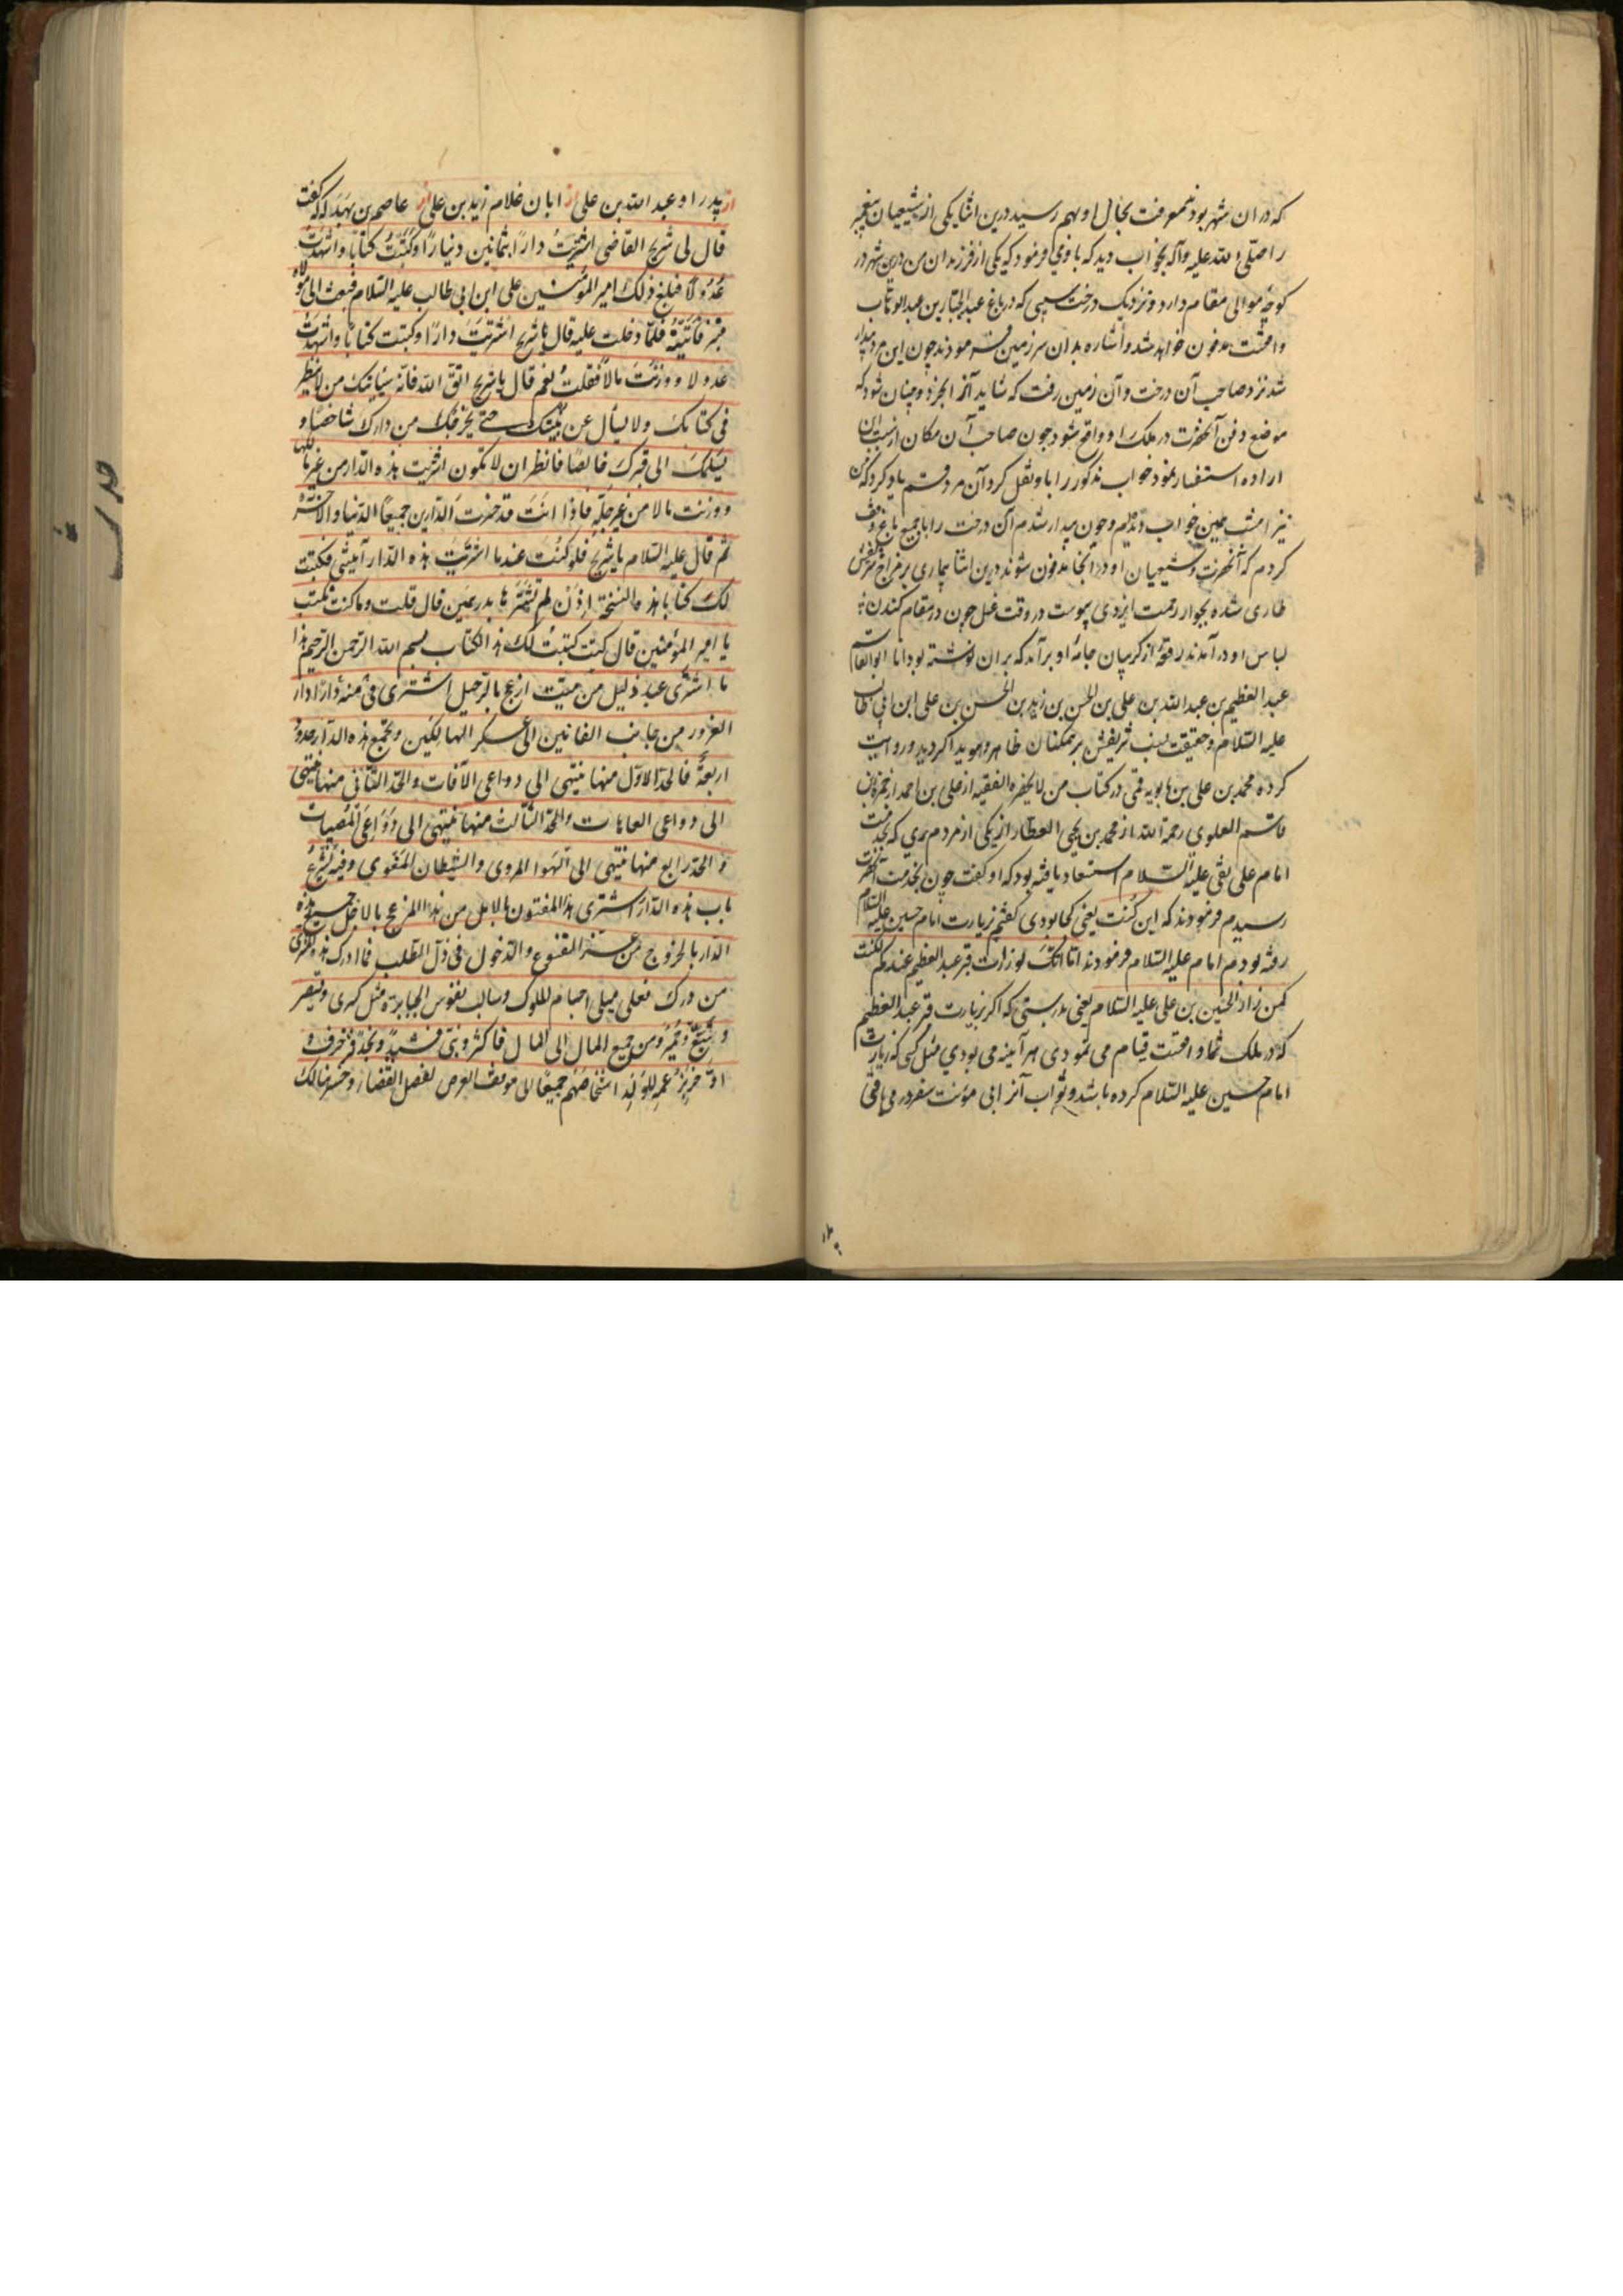 که در ان شهر بودند معرفت بحال او بهم رسید درین اثنا یکی از شیعیان پیغمبر
را صلّی الله علیه وآله بخواب دید که با وی میفرمود که یکی از فرزندان من درین شهر در
کوچهٔ موالی مقام دارد و نزدیک درخت سیبی که در باغ عبد الجبّار بن عبد الوهاب
واقعست مدفون خواهد شد و اشاره بدان سرزمین فرمودند چون این مرد بیدار
شد نزد صاحب آن درخت و آن زمین رفت که شاید آنرا بخرد و چنان شود که
موضع دفن آنحضرت در ملک او واقع شود چون صاحب آن مکان از سبب این
اراده استفسار نمود خواب مذکور را با و نقل کرد آن مرد قسم یاد کرد که من
نیز امشب همین خواب دیدم و چون بیدار شدم آن درخت را با جمیع باغ وقف
کردم که آنحضرت و شیعیان او در آنجا مدفون شوند درین اثنا بیماری بر مزاج شریفش
طاری شده بجوار رحمت ایزدی پیوست در وقت غسل چون در مقام کندن
لباس او در آمدند رقعهٔ از گریبان جامهٔ او برآمد که بران نوشته بود انا ابو القاسم
عبد العظیم بن عبد الله بن علی بن الحسن بن زید بن الحسن بن علی ابن ابی طالب
علیه السّلام و حقیقت نسب شریفش بر همکنان ظاهر و هویدا گردید و روایت
کرده محمد بن علی بن بابویه قمی در کتاب من لا یحضره الفقیه از علی بن احمد از حمزة بن
قاسم العلوی رحمة الله از محمد بن یحیی العطّار از یکی از مردم ری که بخدمت
امام علی نقی علیه السّلام استسعاد یافته بود که او گفت چون بخدمت آنحضرت
رسیدم فرمودند که این کُنت یعنی کجا بودی گفتم زیارت امام حسین علیه السّلام
رفته بودم امام علیه السّلام فرمودند اما انّک لو زرت قبر عبد العظیم عندکم لکنت
کمن زار الحسین بن علی علیه السلام یعنی بدرستی که اگر زیارت قبر عبد العظیم
که در ملک شما واقعست قیام می نمودی هر آینه می بودی مثل کسی که زیارت
امام حسین علیه السّلام کرده باشد و ثواب آنرا بی مؤنت سفر در می یافتی
از پدر او عبد الله بن علی از ابان غلام زید بن علی از عاصم بن بهدله که گفت
قال لی شریح القاضی اشتریتُ دارًا بثمانین دینارًا و کتبتُ کتابًا و اشهدتُ
عُدُولًا فبلغ ذلک امیر المؤمنین علی ابن ابی طالب علیه السّلام فبعث الی مولاه
قنبر فأتیته فلمّا دخلت علیه قال یا شریح اشتریتَ دارًا و کتبت کتابًا و اشهدتَ
عدولا و وزنتَ مالًا فقلتُ نعم قال یا شریح اتّق الله فانّه سیأتیک من لا ینظر
فی کتابک ولا یسأل عن بیّنتک حتی یخرجک من دارک شاخصًا و
یسلمک الی قبرک خالصًا فانظر ان لا تکون اشتریت هذه الدّار من غیر مالکها
و وزنت مالا من غیر حلّه فاذا انتَ قد خسرتَ الدّارین جمیعًا الدّنیا والآخرة
ثم قال علیه السّلام یا شریح فلو کنتَ عند ما اشتریتَ هذه الدّار آتیتنی فکتبت
لک کتابا هذه النسخة اذن لم تشترها بدرهمین قال قلت وما کنت تکتب
یا امیر المؤمنین قال کنت کتبتُ لک هذا الکتاب بسم الله الرّحمن الرّحیم هذا
ما اشتری عبد ذلیل من میّت ازعج بالرّحیل اشتری منه دارًا دار
الغرور من جانب الفانین الی عسکر الهالکین وتجمع هذه الدّار حدودٌ
اربعةٌ فالحدّ الاوّل منها ینتهی الی دواعی الآفات والحدّ الثّانی منها ینتهی
الی دواعی العاهات والحدّ الثّالث منها ینتهی الی دواعی المصیبات
والحدّ رابع منها ینتهی الی الهوا المردی والشیطان المغوی وفیه یشرع
باب هذه الدّار اشتری هذا المفتون بالامل من هذا المزعج بالاجل جمیع هذه
الدّار بالخروج من عزّ القنوع والدّخول فی ذلّ الطّلب فما ادرک هذا المشتری
من درک فعلی مبلی اجسام الملوک وسالب نفوس الجبابرة مثل کسری وقیصر
وتبّع و حمیر ومن جمع المال الی المال فاکثر وبنی فشیّد ونجّد فزخرف و
ادّخر بزعمه للولد اشخاصهم جمیعًا الی موقف العرض لفصل القضاء وخسر هنالک